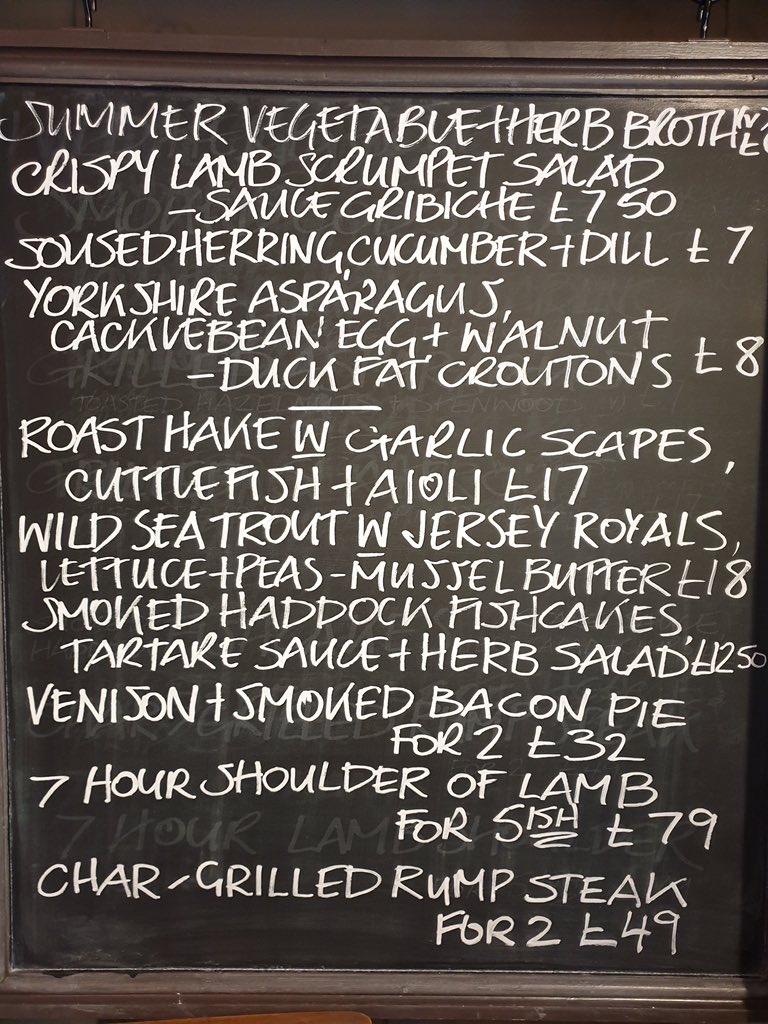 SUMMER VEGETABLE + HERB BROTH (V)
CRISPY LAMB SCRUMPET SALAD
- SAUCE GRIBICHE £7 50
SOUSED HERRING, CUCUMBER + DILL £7
YORKSHIRE ASPARAGUS,
CACKLEBEAN EGG + WALNUT
- DUCK FAT CROUTONS £8
ROAST HAKE W GARLIC SCAPES,
CUTTLEFISH + AIOLI £17
WILD SEA TROUT W JERSEY ROYALS,
LETTUCE + PEAS - MUSSEL BUTTER £18
SMOKED HADDOCK FISHCAKES,
TARTARE SAUCE + HERB SALAD £12 50
VENISON + SMOKED BACON PIE
FOR 2 £32
7 HOUR SHOULDER OF LAMB
FOR 5ISH £79
CHAR-GRILLED RUMP STEAK
FOR 2 £49